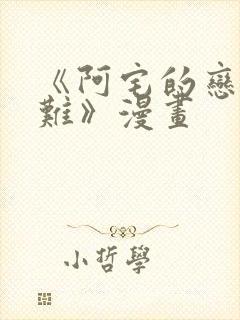 《阿宅的戀
難》漫畫
小哲學